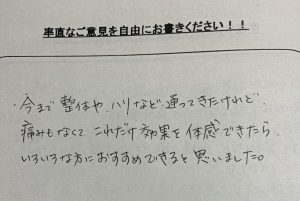 率直なご意見を自由にお書きください！！
・今まで整体や、ハリなど通ってきたけれど、
痛みもなくて これだけ効果を体感できたら
いろいろな方におすすめできると思いました。